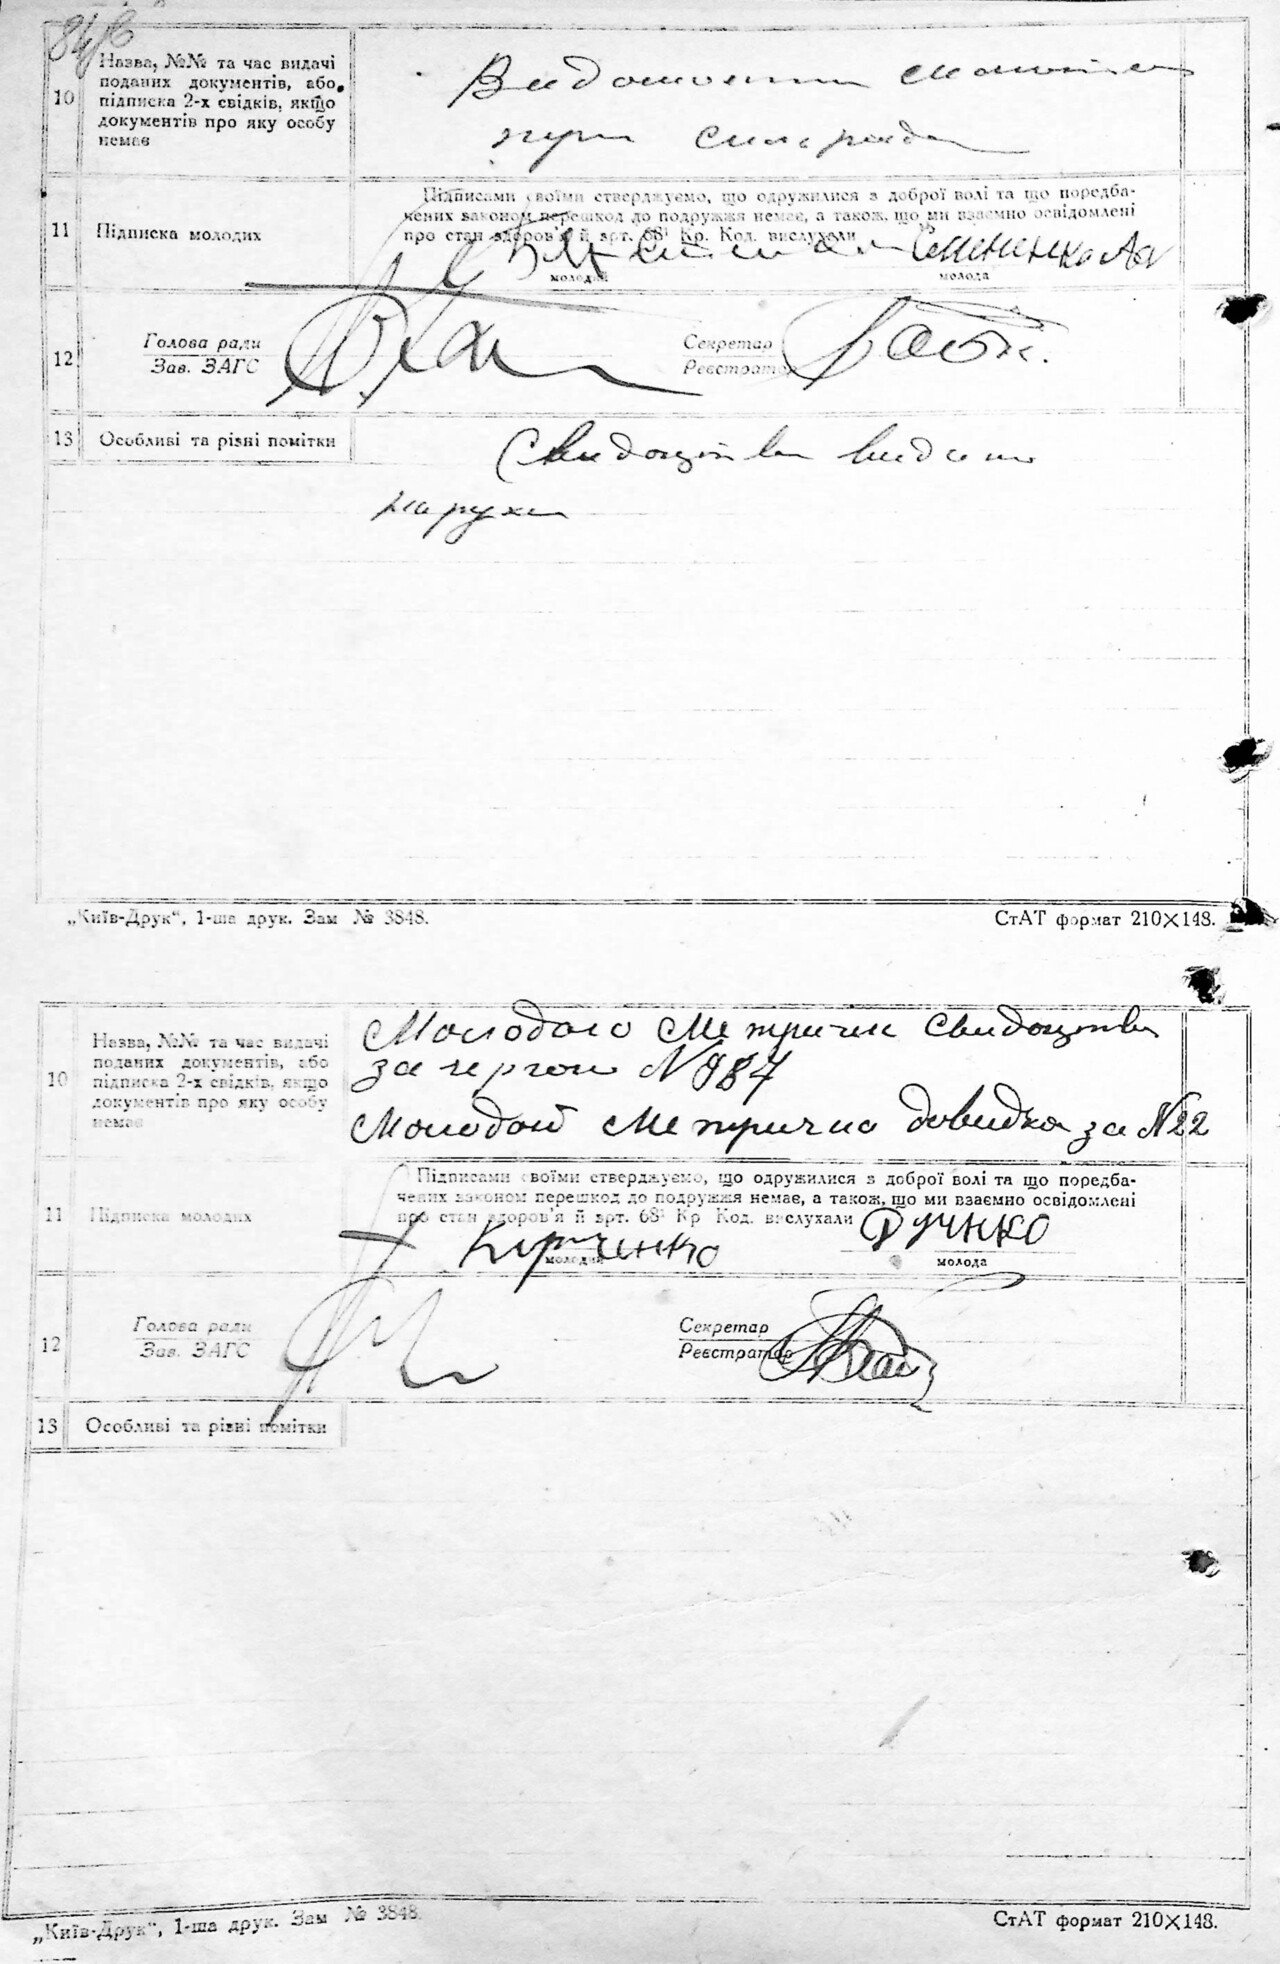 10
Назва, №№ та час видачі
поданих документів, або
підписка 2-х свідків, якщо
документів про яку особу
немає
11
Підписка молодих
Підписами своїми стверджуємо, що одружилися з доброї волі та що передба-
чених законом перешкод до подружжя немає, а також, що ми взаємно освідомлені
про стан здоров'я й арт. 68¹ Кр. Код. вислухали
молодий
молода
12
Голова ради
Зав. ЗАГС
Секретар
Реєстратор
13
Особливі та різні помітки
Свидоцтва видано
на руки
„Київ-Друк“, 1-ша друк. Зам № 3848.
СтАТ формат 210×148.
10
Назва, №№ та час видачі
поданих документів, або
підписка 2-х свідків, якщо
документів про яку особу
немає
Молодого Метричне свидоцтва
за чергою № 987
Молодой Метрична довидка за № 22
11
Підписка молодих
Підписами своїми стверджуємо, що одружилися з доброї волі та що передба-
чених законом перешкод до подружжя немає, а також, що ми взаємно освідомлені
про стан здоров'я й арт. 68¹ Кр Код. вислухали
молодий
молода
12
Голова ради
Зав. ЗАГС
Секретар
Реєстратор
13
Особливі та різні помітки
„Київ-Друк“, 1-ша друк. Зам № 3848.
СтАТ формат 210×148.